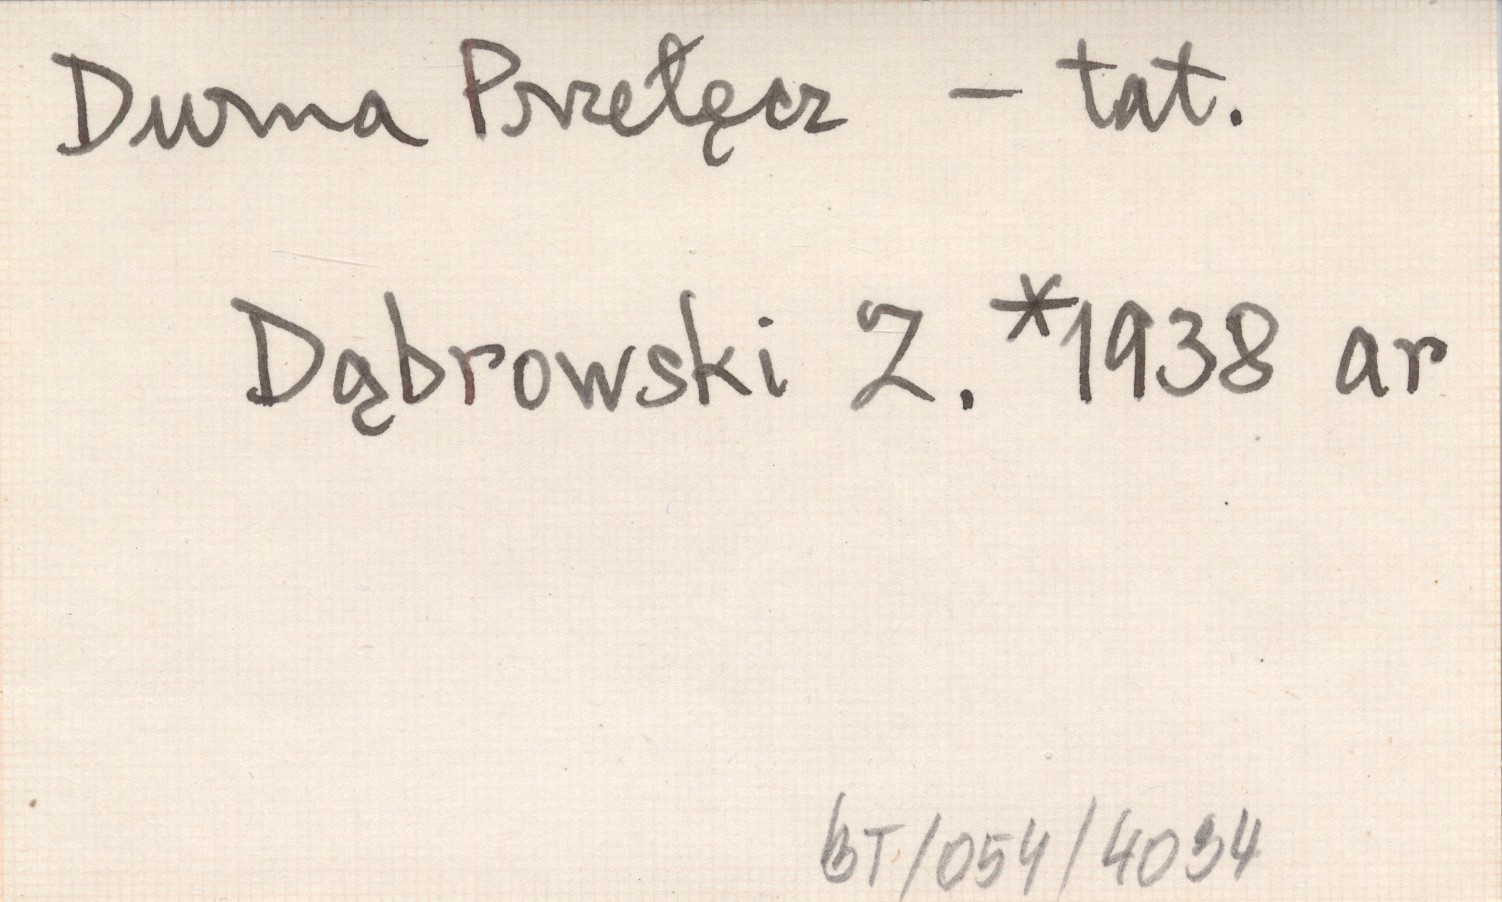 Durna Przełęcz - tat.
Dąbrowski Z. *1938 ar
BT/054/4034